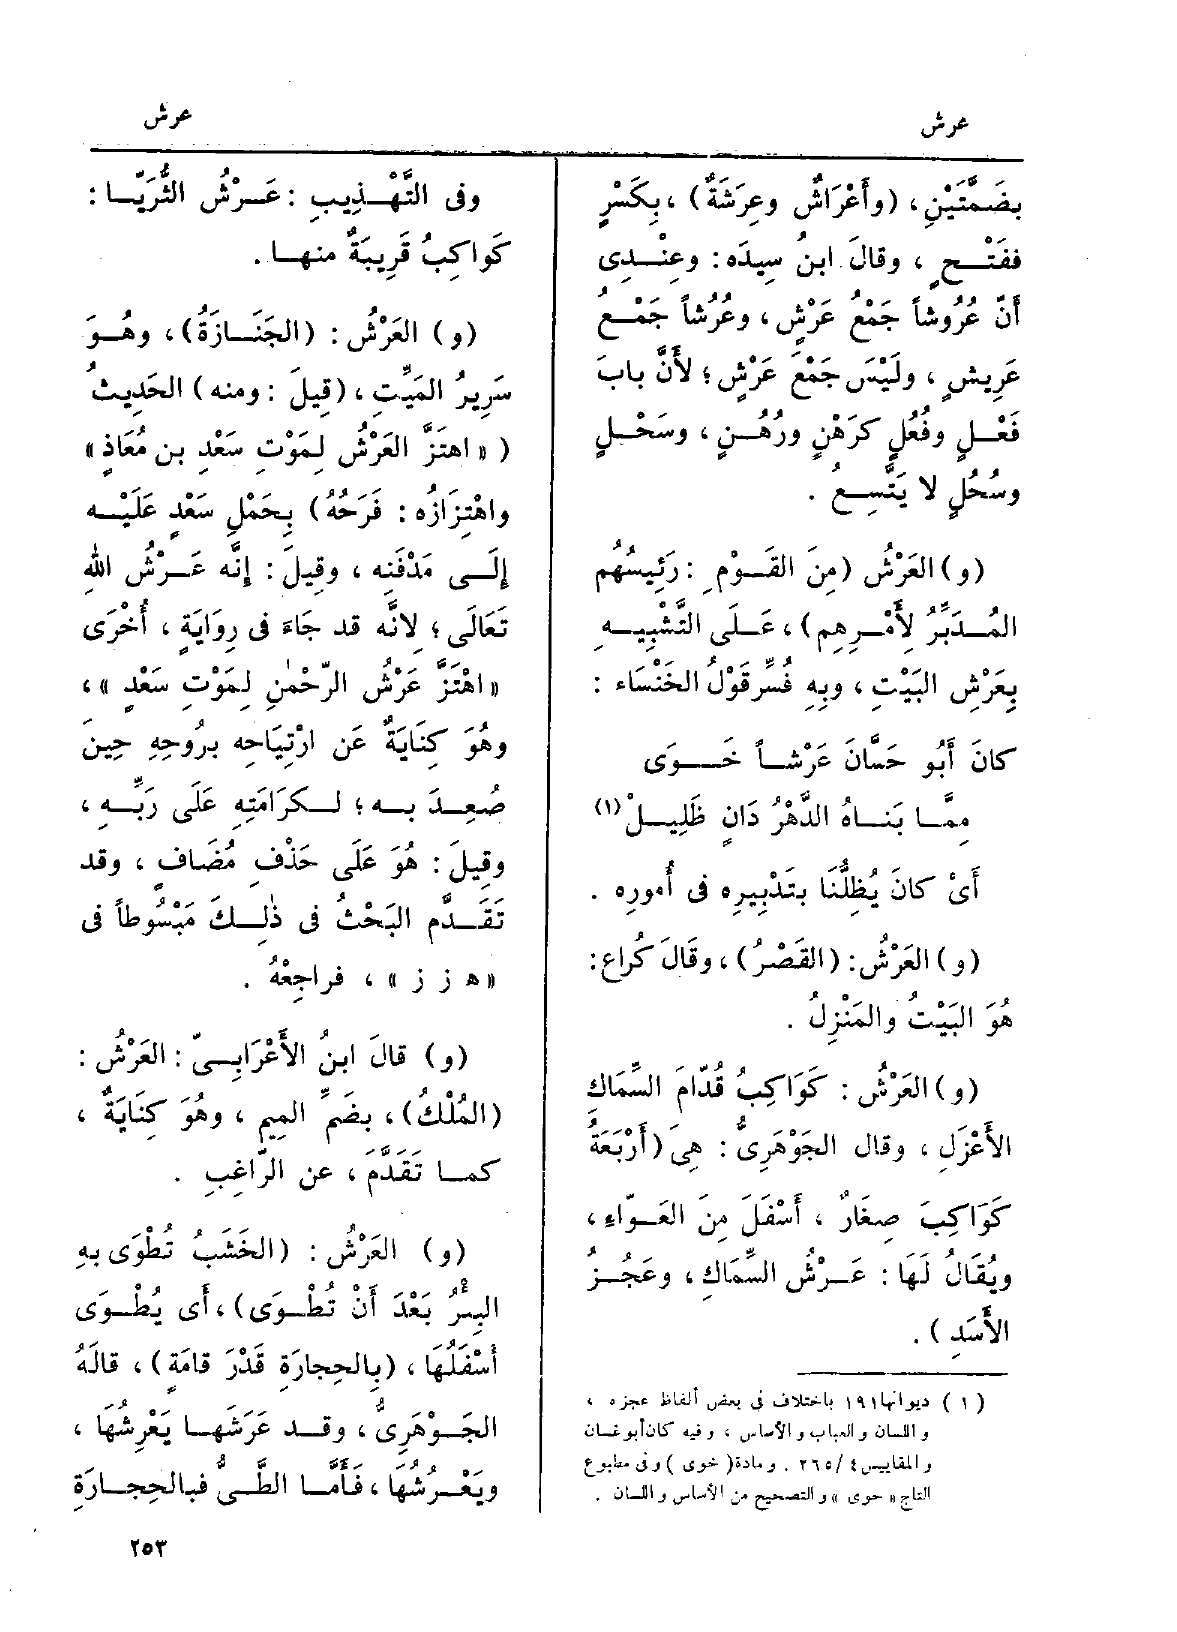 عرش
عرش
بضَمَّتَيْنِ ، (وأَعْرَاشٌ وعِرَشَةٌ) ، بكَسْرٍ
ففَتْـــحٍ ، وقالَ ابنُ سِيدَه : وعِنْــدِى
أَنَّ عُرُوشاً جَمْعُ عَرْشٍ ، وعُرُشاً جَمْــعُ
عَرِيشٍ ، ولَيْسَ جَمْعَ عَرْشٍ ؛ لأَنَّ بابَ
فَعْـــلٍ وفُعُلٍ كرَهْنٍ ورُهُــنٍ ، وسَحْــلٍ
وسُحُلٍ لا يَتَّسِــعُ .
(و) العَرْشُ (مِنَ القَــوْمِ : رَئِيسُهُم
المُــدَبِّرُ لأَمْــرِهِم) ، عَــلَى التَّشْبِيــهِ
بِعَرْشِ البَيْتِ ، وبِهِ فُسِّرَ قَوْلُ الخَنْسَاء :
كانَ أَبُو حَسَّانَ عَرْشــاً خَـــوَى
مِمَّــا بَنَــاهُ الدَّهْرُ دَانٍ ظَلِيــلْ (١)
أَىْ كانَ يُظِلُّنَا بتَدْبِيرِه فى أُمورِه .
(و) العَرْشُ : (القَصْرُ) ، وقَالَ كُراع :
هُوَ البَيْتُ والمَنْزِلُ .
(و) العَرْشُ : كَوَاكِبُ قُدّامَ السِّمَاك
الأَعْزَلِ ، وقال الجَوْهَرِىُّ : هِىَ (أَرْبَعَةُ
كَوَاكِبَ صِغَارٌ ، أَسْفَلَ مِنَ العَــوّاءِ ،
ويُقَالُ لَهَا : عَــرْشُ السِّمَاكِ ، وعَجُــزُ
الأَسَدِ ) .
( ١ ) ديوانها ١٩١ باختلاف فى بعض ألفاظ عجزه ،
واللسان والعباب والأساس ، وفيه كان أبوغسان
والمقاييس ٤/ ٢٦٥ . ومادة ( خوى ) وفى مطبوع
التاج « حوى » والتصحيح من الأساس واللسان .
وفى التَّهْــذِيبِ : عَــرْشُ الثُّرَيَّــا :
كَواكِبُ قَرِيبَةٌ منهــا .
(و) العَرْشُ : (الجَنَــازَةُ) ، وهُــوَ
سَرِيرُ المَيِّتِ ، (قِيلَ : ومنه) الحَدِيثُ
( « اهتَزَّ العَرْشُ لِمَوْتِ سَعْدِ بن مُعَاذٍ »
واهْتِزَازُه : فَرَحُهُ) بِحَمْلِ سَعْدٍ عَلَيْــه
إِلَــى مَدْفَنِه ، وقِيلَ : إِنَّه عَــرْشُ اللهِ
تَعَالَى ؛ لانَّه قد جَاءَ فى رِوايَةٍ ، أُخْرَى
« اهْتَزَّ عَرْشُ الرّحْمٰنِ لِمَوْتِ سَعْدٍ » ،
وهُوَ كِنَايَةٌ عَن ارْتِيَاحِه بِرُوحِهِ حِينَ
صُعِــدَ بــه ؛ لــكَرَامَتِهِ عَلَى رَبِّــهِ ،
وقِيلَ : هُوَ عَلَى حَذْفِ مُضَافٍ ، وقد
تَقَــدَّم البَحْثُ فى ذٰلِــكَ مَبْسُوطاً فى
« ه ز ز » ، فراجِعْهُ .
(و) قالَ ابنُ الأَعْرَابِــىّ : العَرْشُ :
(المُلْكُ) ، بضَمِّ المِيم ، وهُوَ كِنَايَةٌ ،
كمــا تَقَدَّمَ ، عن الرّاغِبِ .
(و) العَرْشُ : (الخَشَبُ تُطْوَى بِهِ
البِئْرُ بَعْدَ أَنْ تُطْــوَى) ، أَى يُطْــوَى
أَسْفَلُهَا ، (بِالحِجارَةِ قَدْرَ قامَةٍ) ، قالَهُ
الجَــوْهَرِىُّ ، وقــد عَرَشَهــا يَعْرِشُهَا ،
ويَعْــرُشُهَا ، فَأَمَّــا الطَّــىُّ فبالحِجــارَةِ
٢٥٣